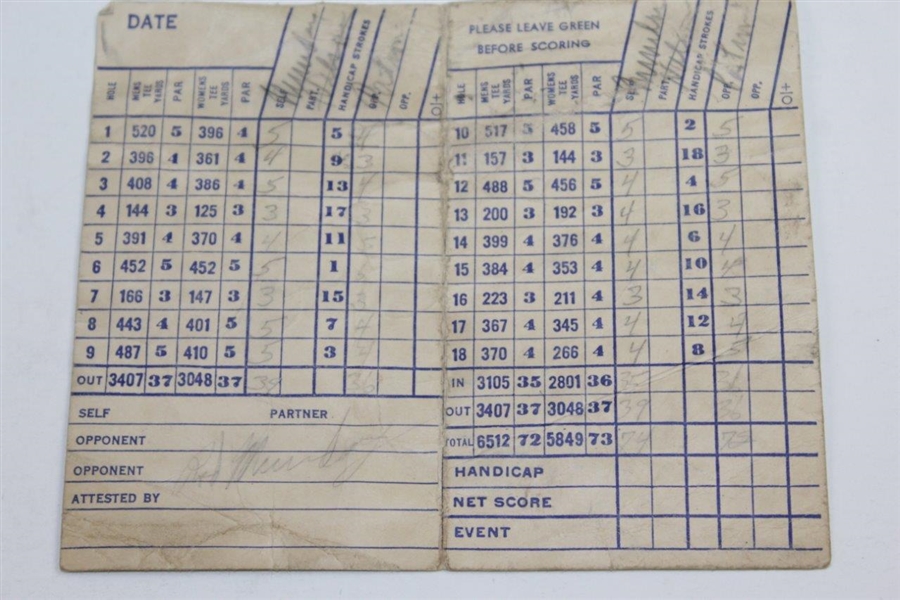 DATE
HOLE MENS TEE YARDS PAR WOMENS TEE YARDS PAR SELF PART. HANDICAP STROKES OPP. OPP. ±0
1 520 5 396 4 5 5 4
2 396 4 361 4 4 9 3
3 408 4 386 4 5 13 4
4 144 3 125 3 3 17 3
5 391 4 370 4 4 11
6 452 5 452 5 5 1
7 166 3 147 3 3 15 3
8 443 4 401 5 5 7 4
9 487 5 410 5 5 3 4
OUT 3407 37 3048 37 39 36
SELF PARTNER
OPPONENT
OPPONENT
ATTESTED BY
PLEASE LEAVE GREEN
BEFORE SCORING
HOLE MENS TEE YARDS PAR WOMENS TEE YARDS PAR SELF PART. HANDICAP STROKES OPP. OPP. ±0
10 517 5 458 5 5 2 5
11 157 3 144 3 3 18 3
12 488 5 456 5 4 4 5
13 200 3 192 3 4 16 3
14 399 4 376 4 4 6 4
15 384 4 353 4 4 10 4
16 223 3 211 4 3 14 3
17 367 4 345 4 4 12 4
18 370 4 266 4 4 8 5
IN 3105 35 2801 36 36
OUT 3407 37 3048 37 39 36
TOTAL 6512 72 5849 73 74 72
HANDICAP
NET SCORE
EVENT